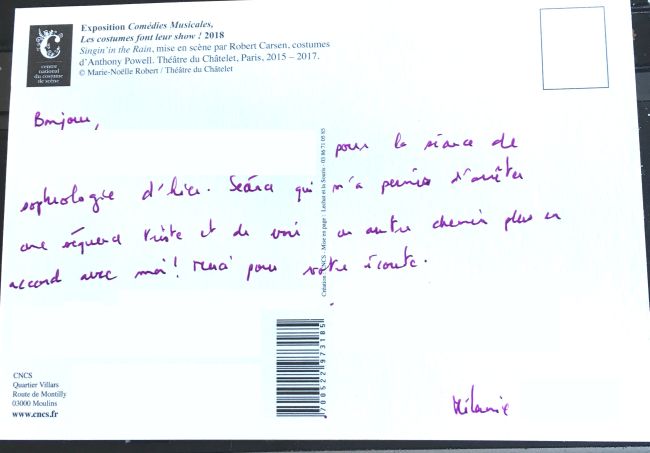 Exposition Comédies Musicales,
Les costumes font leur show ! 2018
Singin' in the Rain, mise en scène par Robert Carsen, costumes
d'Anthony Powell. Théâtre du Châtelet, Paris, 2015 – 2017.
© Marie-Noëlle Robert / Théâtre du Châtelet
centre
national
du costume
de scène
Bonjour,
pour la séance de
sophrologie d'hier. Séance qui m'a permis d'arrêter
une séquence triste et de voir un autre chemin plus en
accord avec moi! Merci pour votre écoute.
Mélanie
Création : CNCS - Mise en page : Lechat et la Souris - 03 86 71 05 85
3700522973185
CNCS
Quartier Villars
Route de Montilly
03000 Moulins
www.cncs.fr